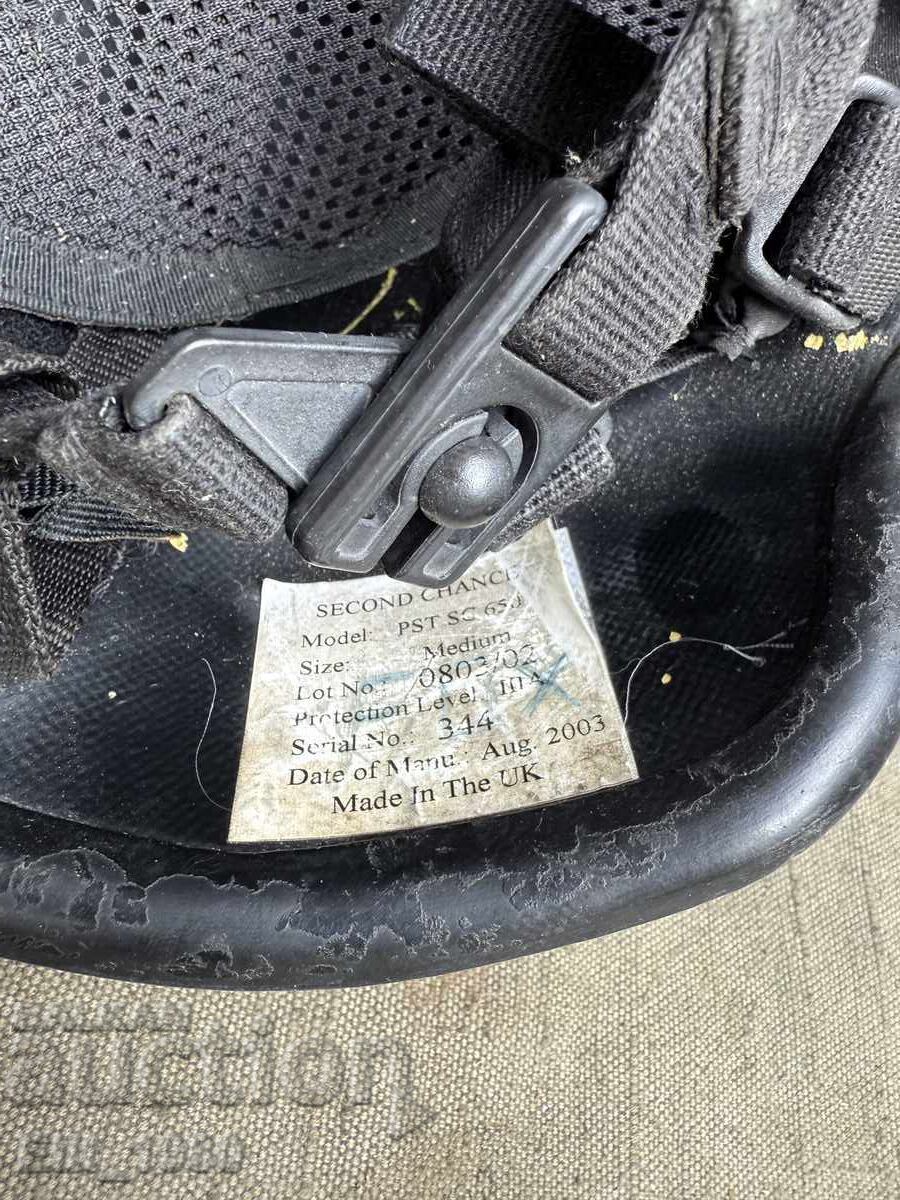 SECOND CHANCE
Model: PST SC 650
Size: Medium
Lot No.: 0803/02
Protection Level: III A
Serial No.: 344
Date of Manu.: Aug. 2003
Made In The UK
auction